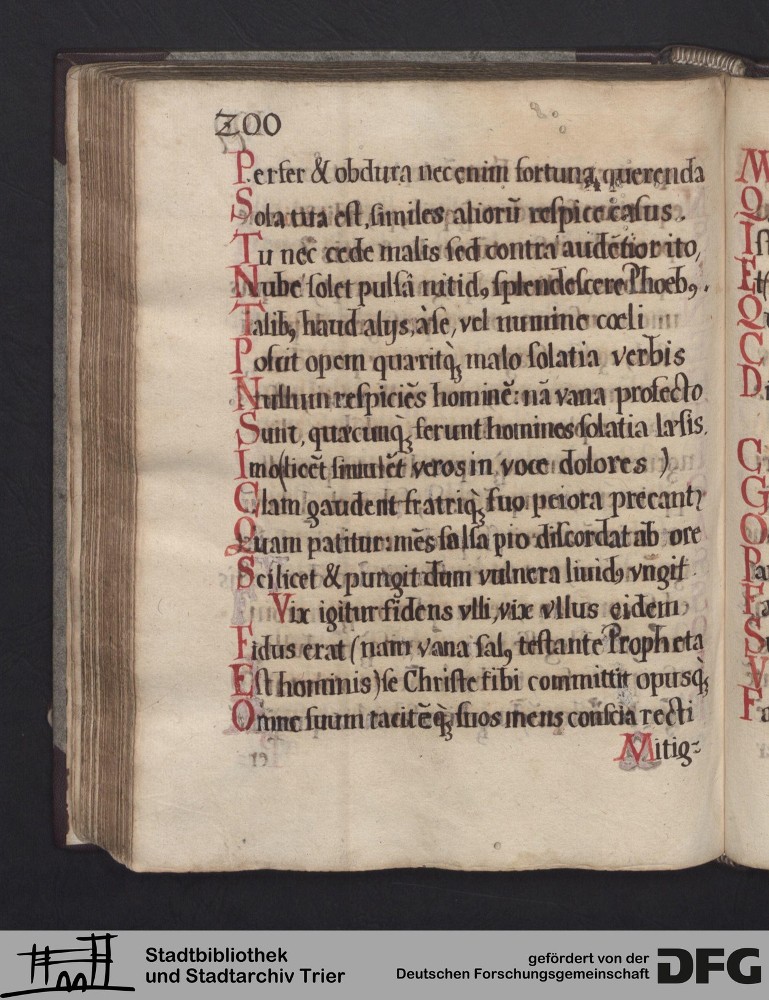 200
Perfer & obdura nec enim fortuna, querenda
Sola tua est, similes aliorū respice casus.
Tu nec cede malis sed contra audētior ito,
Nube solet pulsâ nitidꝰ splendescere Phoebꝰ.
Talibꝰ haud alijs, à se, vel numine cœli
Poscit opem quæritq́ꝫ malo solatia verbis
Nullum respiciēs hominē: nā vana profecto
Sunt, quæcunq́ꝫ ferunt homines solatia læsis.
Imo (licēt simulēt veros in voce dolores)
Clam gaudent fratriq́ꝫ suo peiora precantꝛ
Quam patitur: mēs falsa pio discordat ab ore
Scilicet & pungit dum vulnera liuidꝰ vngit
Vix igitur fidens vlli, vix vllus eidem
Fidus erat (nam vana salꝰ testante Propheta
Est hominis) se Christe tibi committit opusq́ꝫ
Omne suum tacitēq́ꝫ suos mens conscia recti
Mitig-
Stadtbibliothek
und Stadtarchiv Trier
gefördert von der
Deutschen Forschungsgemeinschaft
DFG